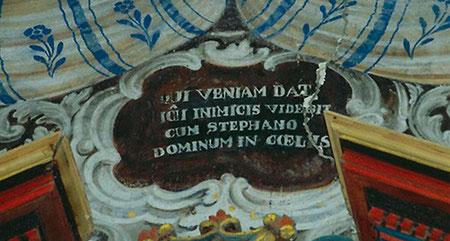 QUI VENIAM DAT
INIMICIS VIDEBIT
CUM STEPHANO
DOMINUM IN COELIS